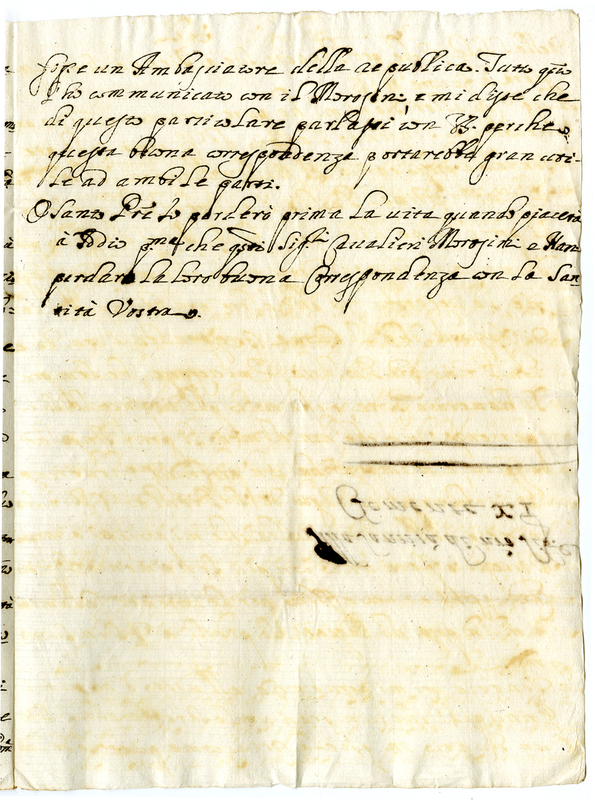 fosse un Ambasciatore della republica. Tutto q.to
l'ho communicato con il Morosin, e mi disse che
di questo particulare parlassi con V.B. perche
questa buona correspondenza portarebbe gran uti-
le ad ambi le parti.
O Santo Pre. Io perderò prima la vita quando piacerà
à Iddio p.ma che q.sti Sig.ri Cavalieri Morosini e Nan
perdare la loro buona Correspondenza con la San-
tità Vostra.
Clemente XI
Alla Santità di Nro Sig.re